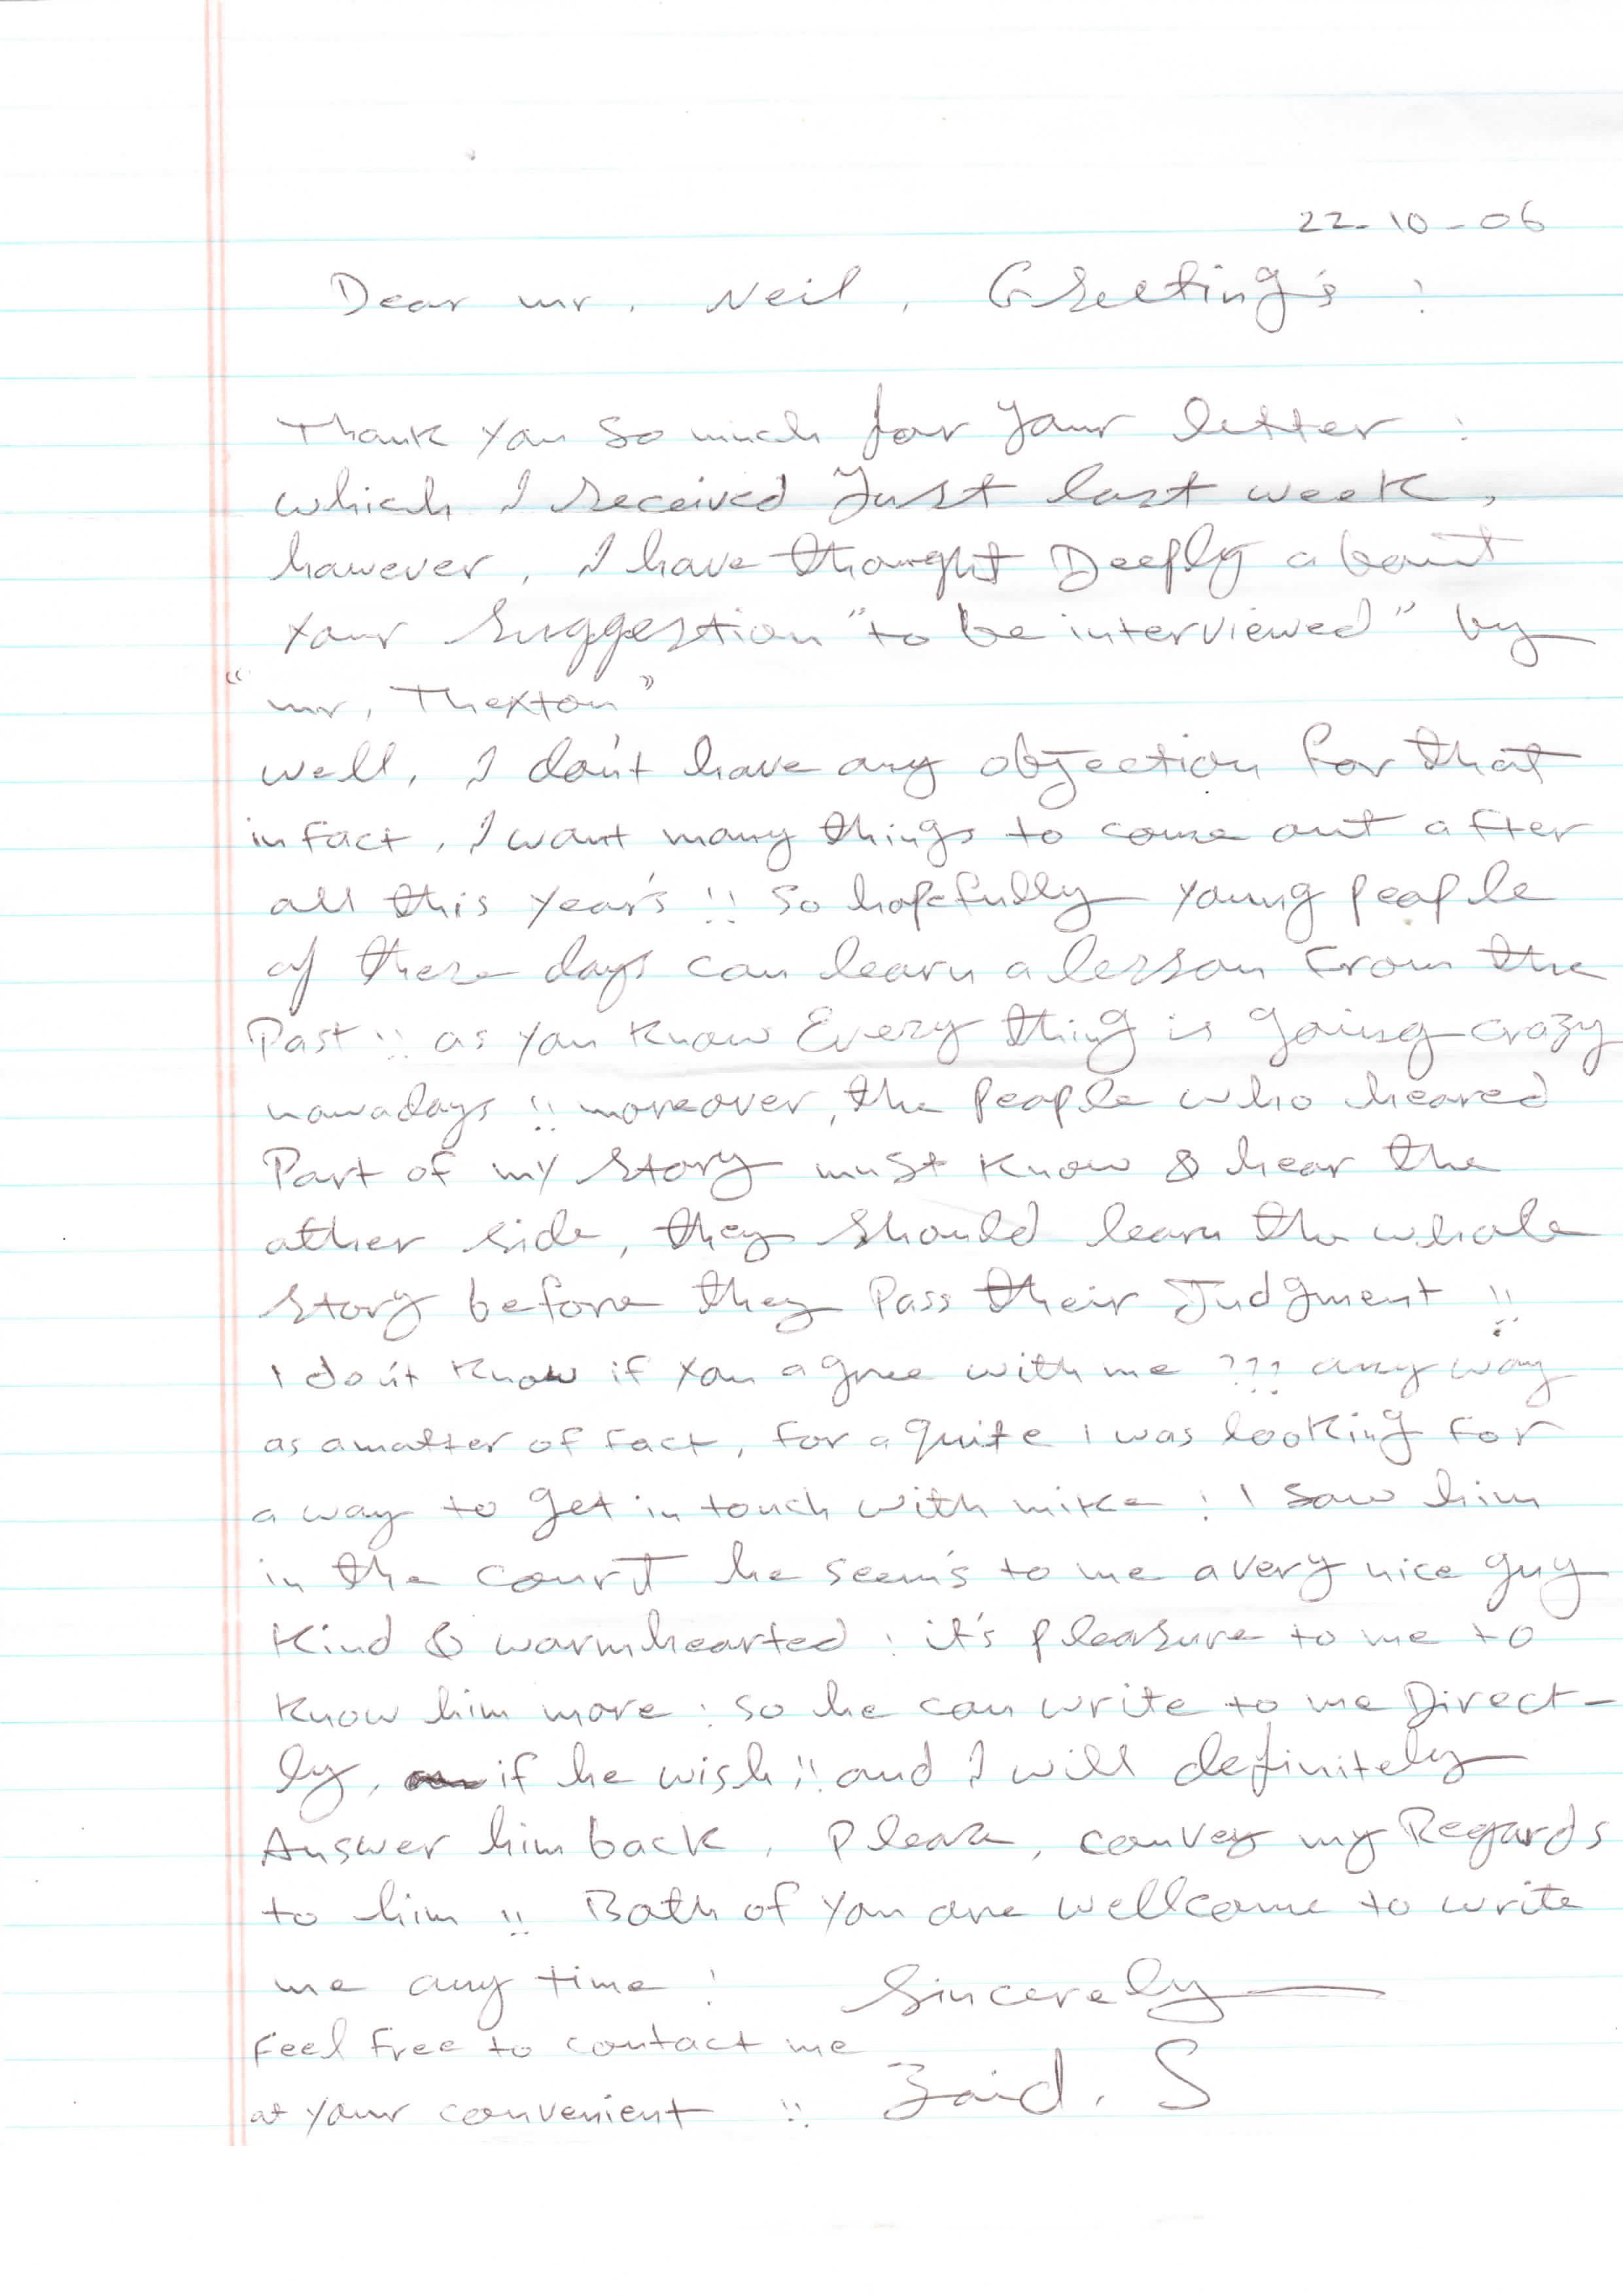 22-10-06
Dear mr. Neil, Greeting's!
Thank you so much for your letter:
which I received Just last week,
however, I have thought Deeply about
your suggestion "to be interviewed" by
"mr, Thexton"
well, I don't have any objection for that
in fact, I want many things to come out after
all this year's!! so hopefully young people
of these days can learn a lesson from the
Past!! as you know Every thing is going crazy
nowadays!! moreover, the people who heared
Part of my story must know & hear the
other side, they should learn the whole
story before they Pass their Judgment!!
I don't know if you agree with me??? any way
as a matter of fact, for a quite I was looking for
a way to get in touch with mike: I saw him
in the court he seem's to me a very nice guy
Kind & warmhearted: it's pleasure to me to
know him more: so he can write to me Direct-
ly, if he wish!! and I will definitely
Answer him back, Please, convey my Regards
to him!! Both of you are wellcome to write
me any time! Sincerely
Feel free to contact me
at your convenient!! Zaid. S